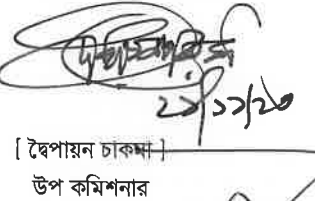 ২১/১১/২৩
[ দ্বৈপায়ন চাকমা ]
উপ কমিশনার